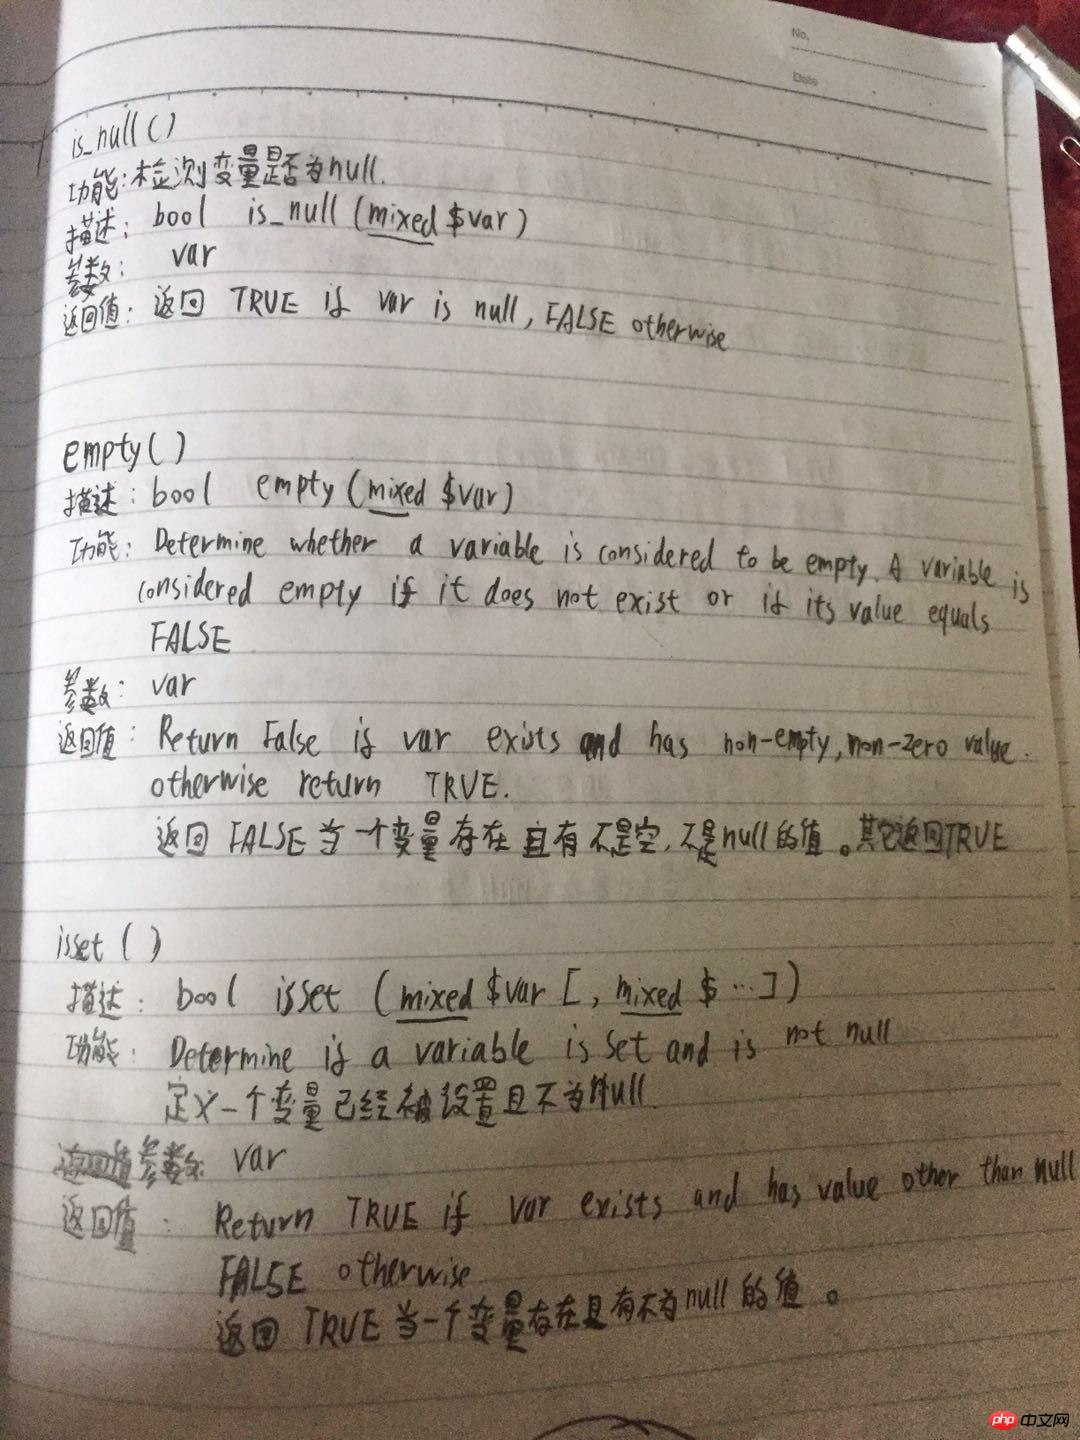 No.
Date
is_null()
功能:检测变量是否为null.
描述: bool is_null(mixed $var)
参数: var
返回值: 返回 TRUE if var is null, FALSE otherwise
empty()
描述: bool empty(mixed $var)
功能: Determine whether a variable is considered to be empty. A variable is
considered empty if it does not exist or if its value equals
FALSE
参数: var
返回值: Return False is var exists and has non-empty, non-zero value.
otherwise return TRUE.
返回 FALSE 当一个变量存在且有不是空,不是null的值。其它返回TRUE
isset()
描述: bool isset (mixed $var [, mixed $ ...])
功能: Determine if a variable is set and is not null
定义一个变量已经被设置且不为null
返回值参数: var
返回值: Return TRUE if var exists and has value other than null
FALSE otherwise
返回 TRUE 当一个变量存在且有不为null的值。
php中文网